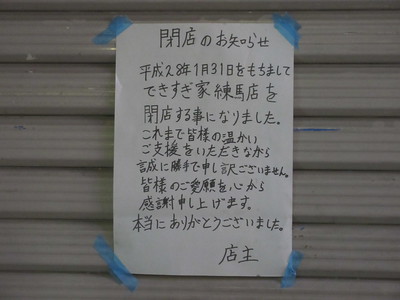 閉店のお知らせ
平成28年1月31日をもちまして
できすぎ家 練馬店を
閉店する事になりました。
これまで皆様の温かい
ご支援をいただきながら
誠に勝手で申し訳ございません。
皆様のご愛願を心から
感謝申し上げます。
本当にありがとうございました。
店主